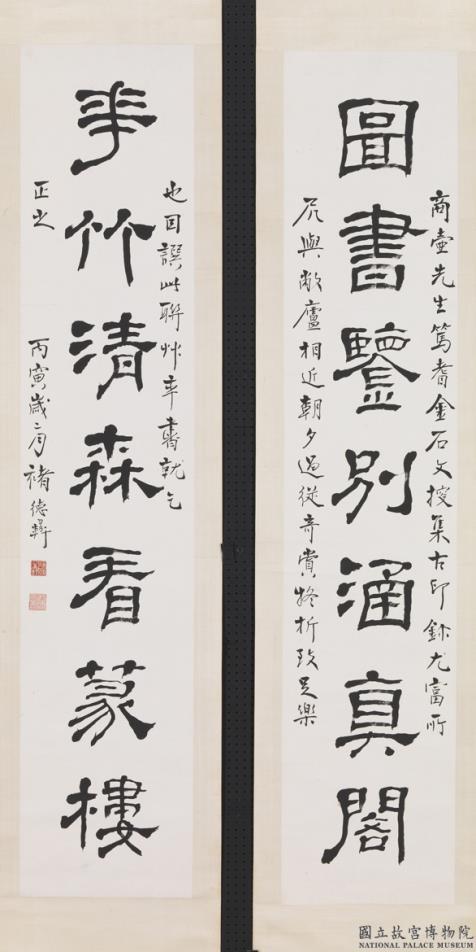 圖書鑒別涵真閣
商壺先生篤耆金石文搜集古印鉨尤富所
凥與敝廬相近朝夕過從奇賞疑析致足樂
華竹清森看篆樓
也因譔此聯艸率書就乞
正之
丙寅歲二月褚德彝
國立故宮博物院
NATIONAL PALACE MUSEUM